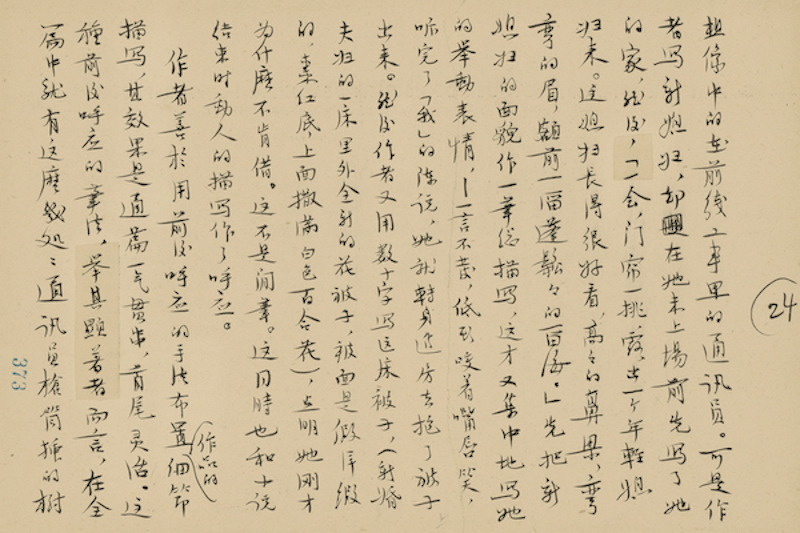 24
想像中的在前綫工事里的通讯员。可是作
者写新媳妇,却在她未上場前先写了她
的家,然後,「一会,门帘一挑,露出一个年輕媳
妇来。这媳妇长得很好看,高々的鼻梁,弯
弯的眉,額前一溜蓬鬆々的留海。」先把新
媳妇的面貌作一筆总描写,这才又集中地写她
的举動表情,—一言不发,低头咬着嘴唇笑,
听完了「我」的陈说,她就轉身进房去抱了被子
出来。然後作者又用数十字写这床被子,(新婚
夫妇的一床里外全新的花被子,被面是假洋缎
的,枣红底上面撒满白色百合花),点明她刚才
为什麽不肯借。这不是闲筆。这同時也和小说
结束时動人的描写作了呼应。
作者善於用前後呼应的手法布置(作品的)细節
描写,其效果是通篇一气贯串,首尾灵活。这
種前後呼应的筆法,举其顯著者而言,在全
篇中就有这麽幾处:通讯员槍筒插的树
373